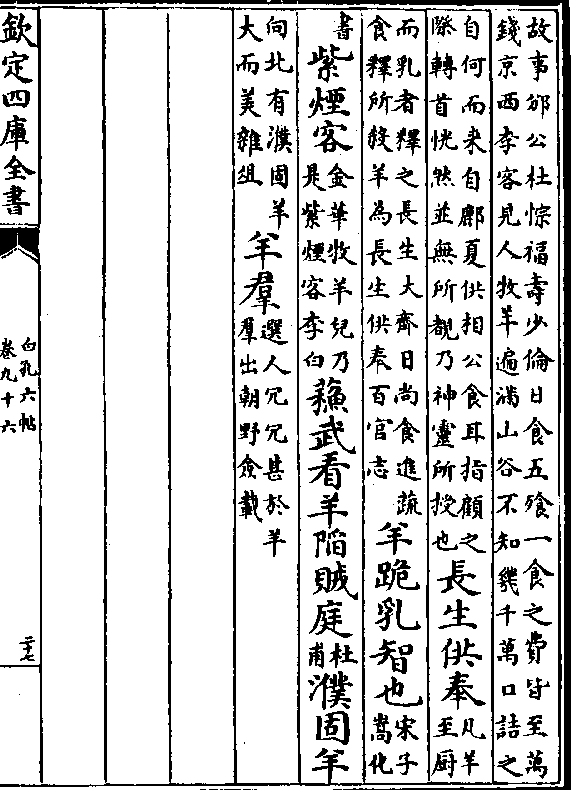 故事邠公杜悰福壽少倫日食五飱一食之費皆至萬
錢京西李客見人牧羊遍滿山谷不知幾千萬口詰之
自何而来自鄜夏供相公食耳指顧之
際轉首恍然並無所覩乃神靈所授也
長生供奉
凡羊
至厨
而乳者釋之長生大齋日尚食進蔬
食釋所殺羊為長生供奉百官志
羊跪乳智也
宋子
嵩化
書
紫煙客
金華牧羊兒乃
是紫煙客李白
蘇武看羊陷賊庭
杜
甫
濮固羊
向北有濮固羊
大而美雜俎
羊羣
選人冗冗甚於羊
羣出朝野僉載
欽定四庫全書
白孔六帖
卷九十六
二十七